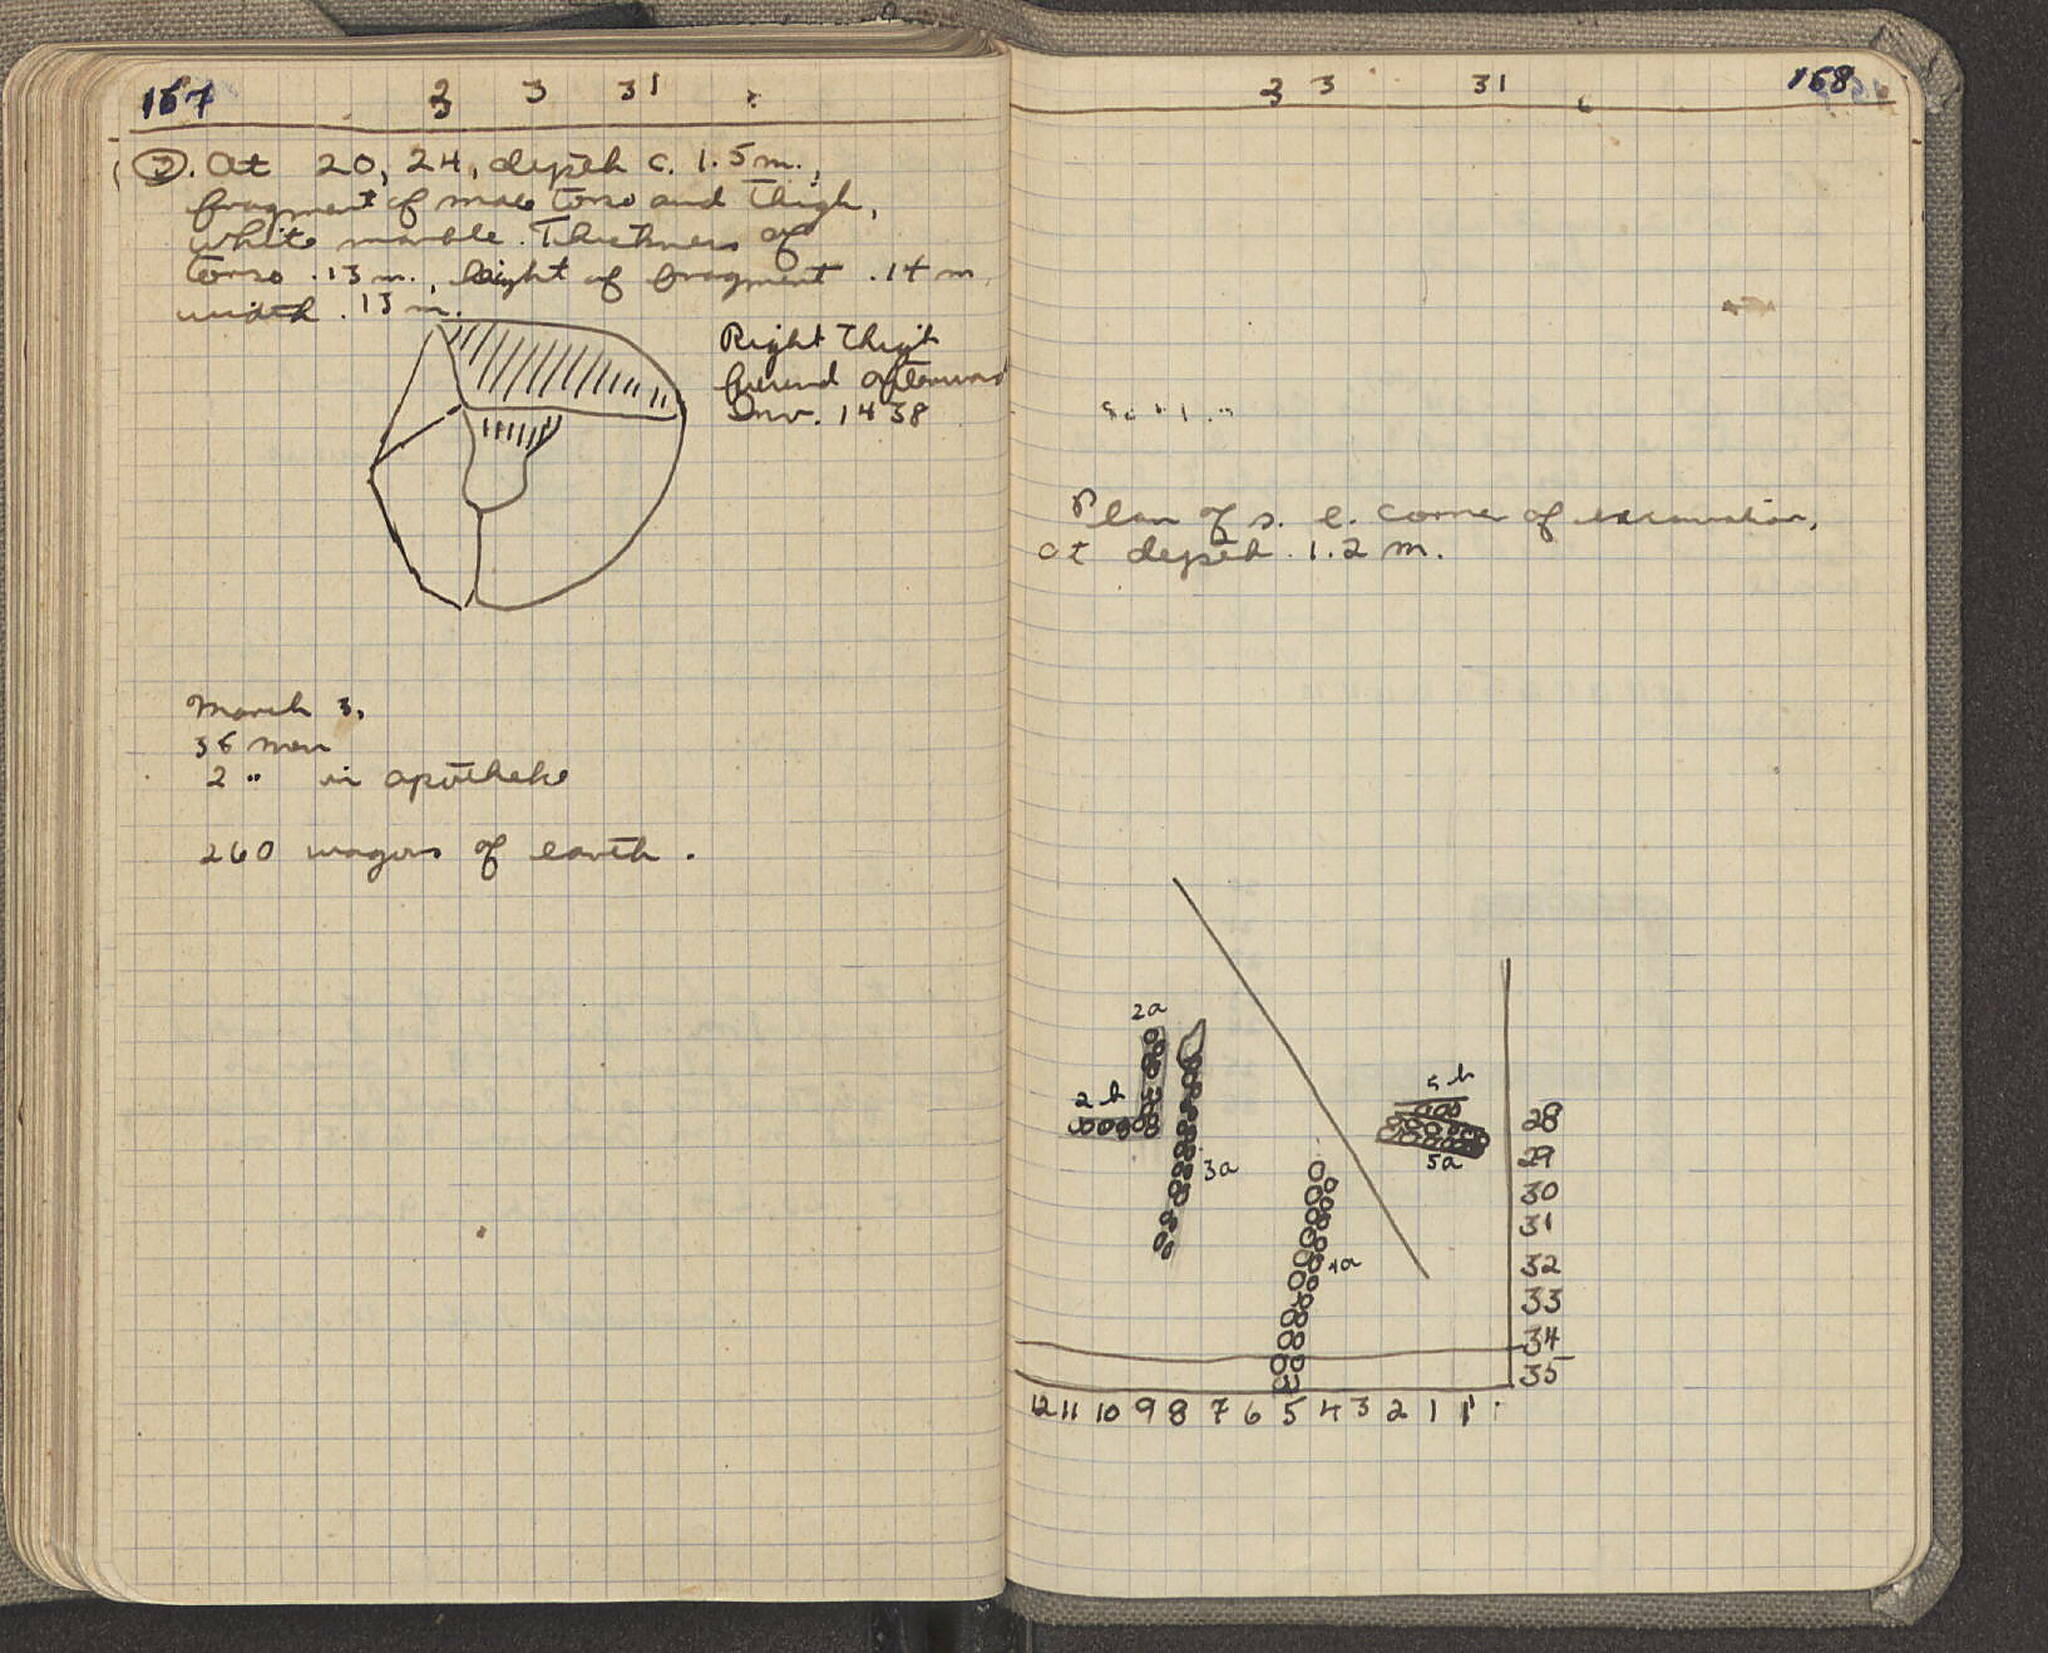 167 3 3 31
②. At 20, 24, depth c. 1.5 m.,
fragment of male torso and thigh,
white marble. Thickness of
torso .13 m., height of fragment .14 m,
width .13 m.
Right thigh
found afterward
Inv. 1438
March 3,
36 men
2 " in apotheke
260 wagons of earth.
3 3 31 168
Plan of s. e. corner of excavation,
at depth 1.2 m.
2a
5 b
2 b
28
5a
29
3a
30
31
4a
32
33
34
35
12 11 10 9 8 7 6 5 4 3 2 1 1'